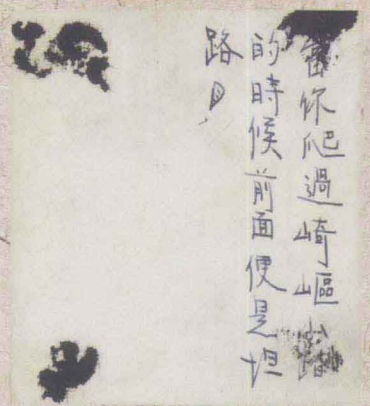 當你爬過崎嶇山路
的時候前面便是坦
路。